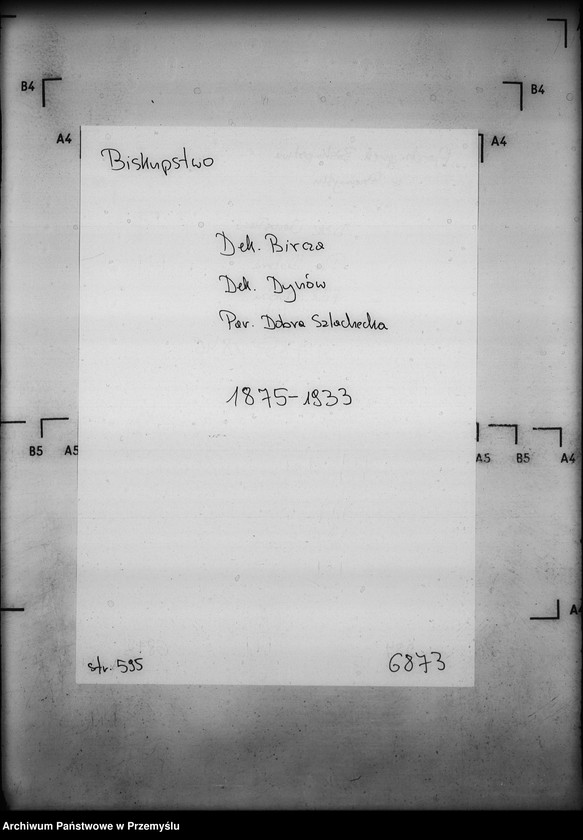 B4
B4
A4
A4
Biskupstwo
Dek. Bircza
Dek. Dynów
Par. Dobra Szlachecka
1875-1933
B5
A5
A5
B5
A4
A4
str. 595
6873
Archiwum Państwowe w Przemyślu